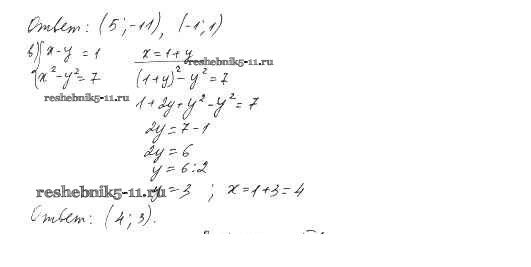 Ответ: (5; -11), (-1; 1)
в) { x - y = 1
x² - y² = 7
x = 1 + y
reshebnik5-11.ru
(1+y)² - y² = 7
reshebnik5-11.ru
1 + 2y + y² - y² = 7
2y = 7 - 1
2y = 6
y = 6 : 2
reshebnik5-11.ru
y = 3 ; x = 1 + 3 = 4
Ответ: (4; 3).